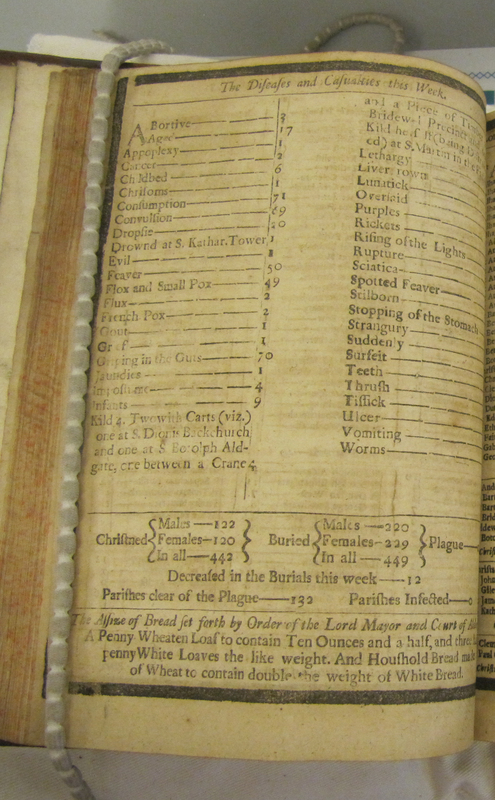 The Diseases and Casualties this Week.
Abortive 3
Aged 17
Appoplexy 1
Cancer 2
Childbed 6
Chrisoms 1
Consumption 71
Convulsion 69
Dropsie 20
Drownd at S. Kathar. Tower 1
Evil 1
Feaver 50
Flox and Small Pox 49
Flux 2
French Pox 2
Gout 1
Grief 1
Griping in the Guts 70
Jaundies 1
Impostume 4
Infants 9
Kild 4. Two with Carts (viz.)
one at S. Dionis Backchurch
and one at S. Botolph Ald-
gate, one between a Crane 4
and a Piece of
Bridewel Precinct
Kild herself (being
ed) at S. Martin in the
Lethargy
Livergrown
Lunatick
Overlaid
Purples
Rickets
Rising of the Lights
Rupture
Sciatica
Spotted Feaver
Stilborn
Stopping of the Stomach
Strangury
Suddenly
Surfeit
Teeth
Thrush
Tissick
Ulcer
Vomiting
Worms
Christned { Males — 122 Females — 120 In all — 442 } Buried { Males — 220 Females — 229 In all — 449 } Plague —
Decreased in the Burials this week — 12
Parishes clear of the Plague — 132 Parishes Infected — 0
The Assize of Bread set forth by Order of the Lord Mayor and Court of
A Penny Wheaten Loaf to contain Ten Ounces and a half, and three
penny White Loaves the like weight. And Houshold Bread made
of Wheat to contain double the weight of White Bread.